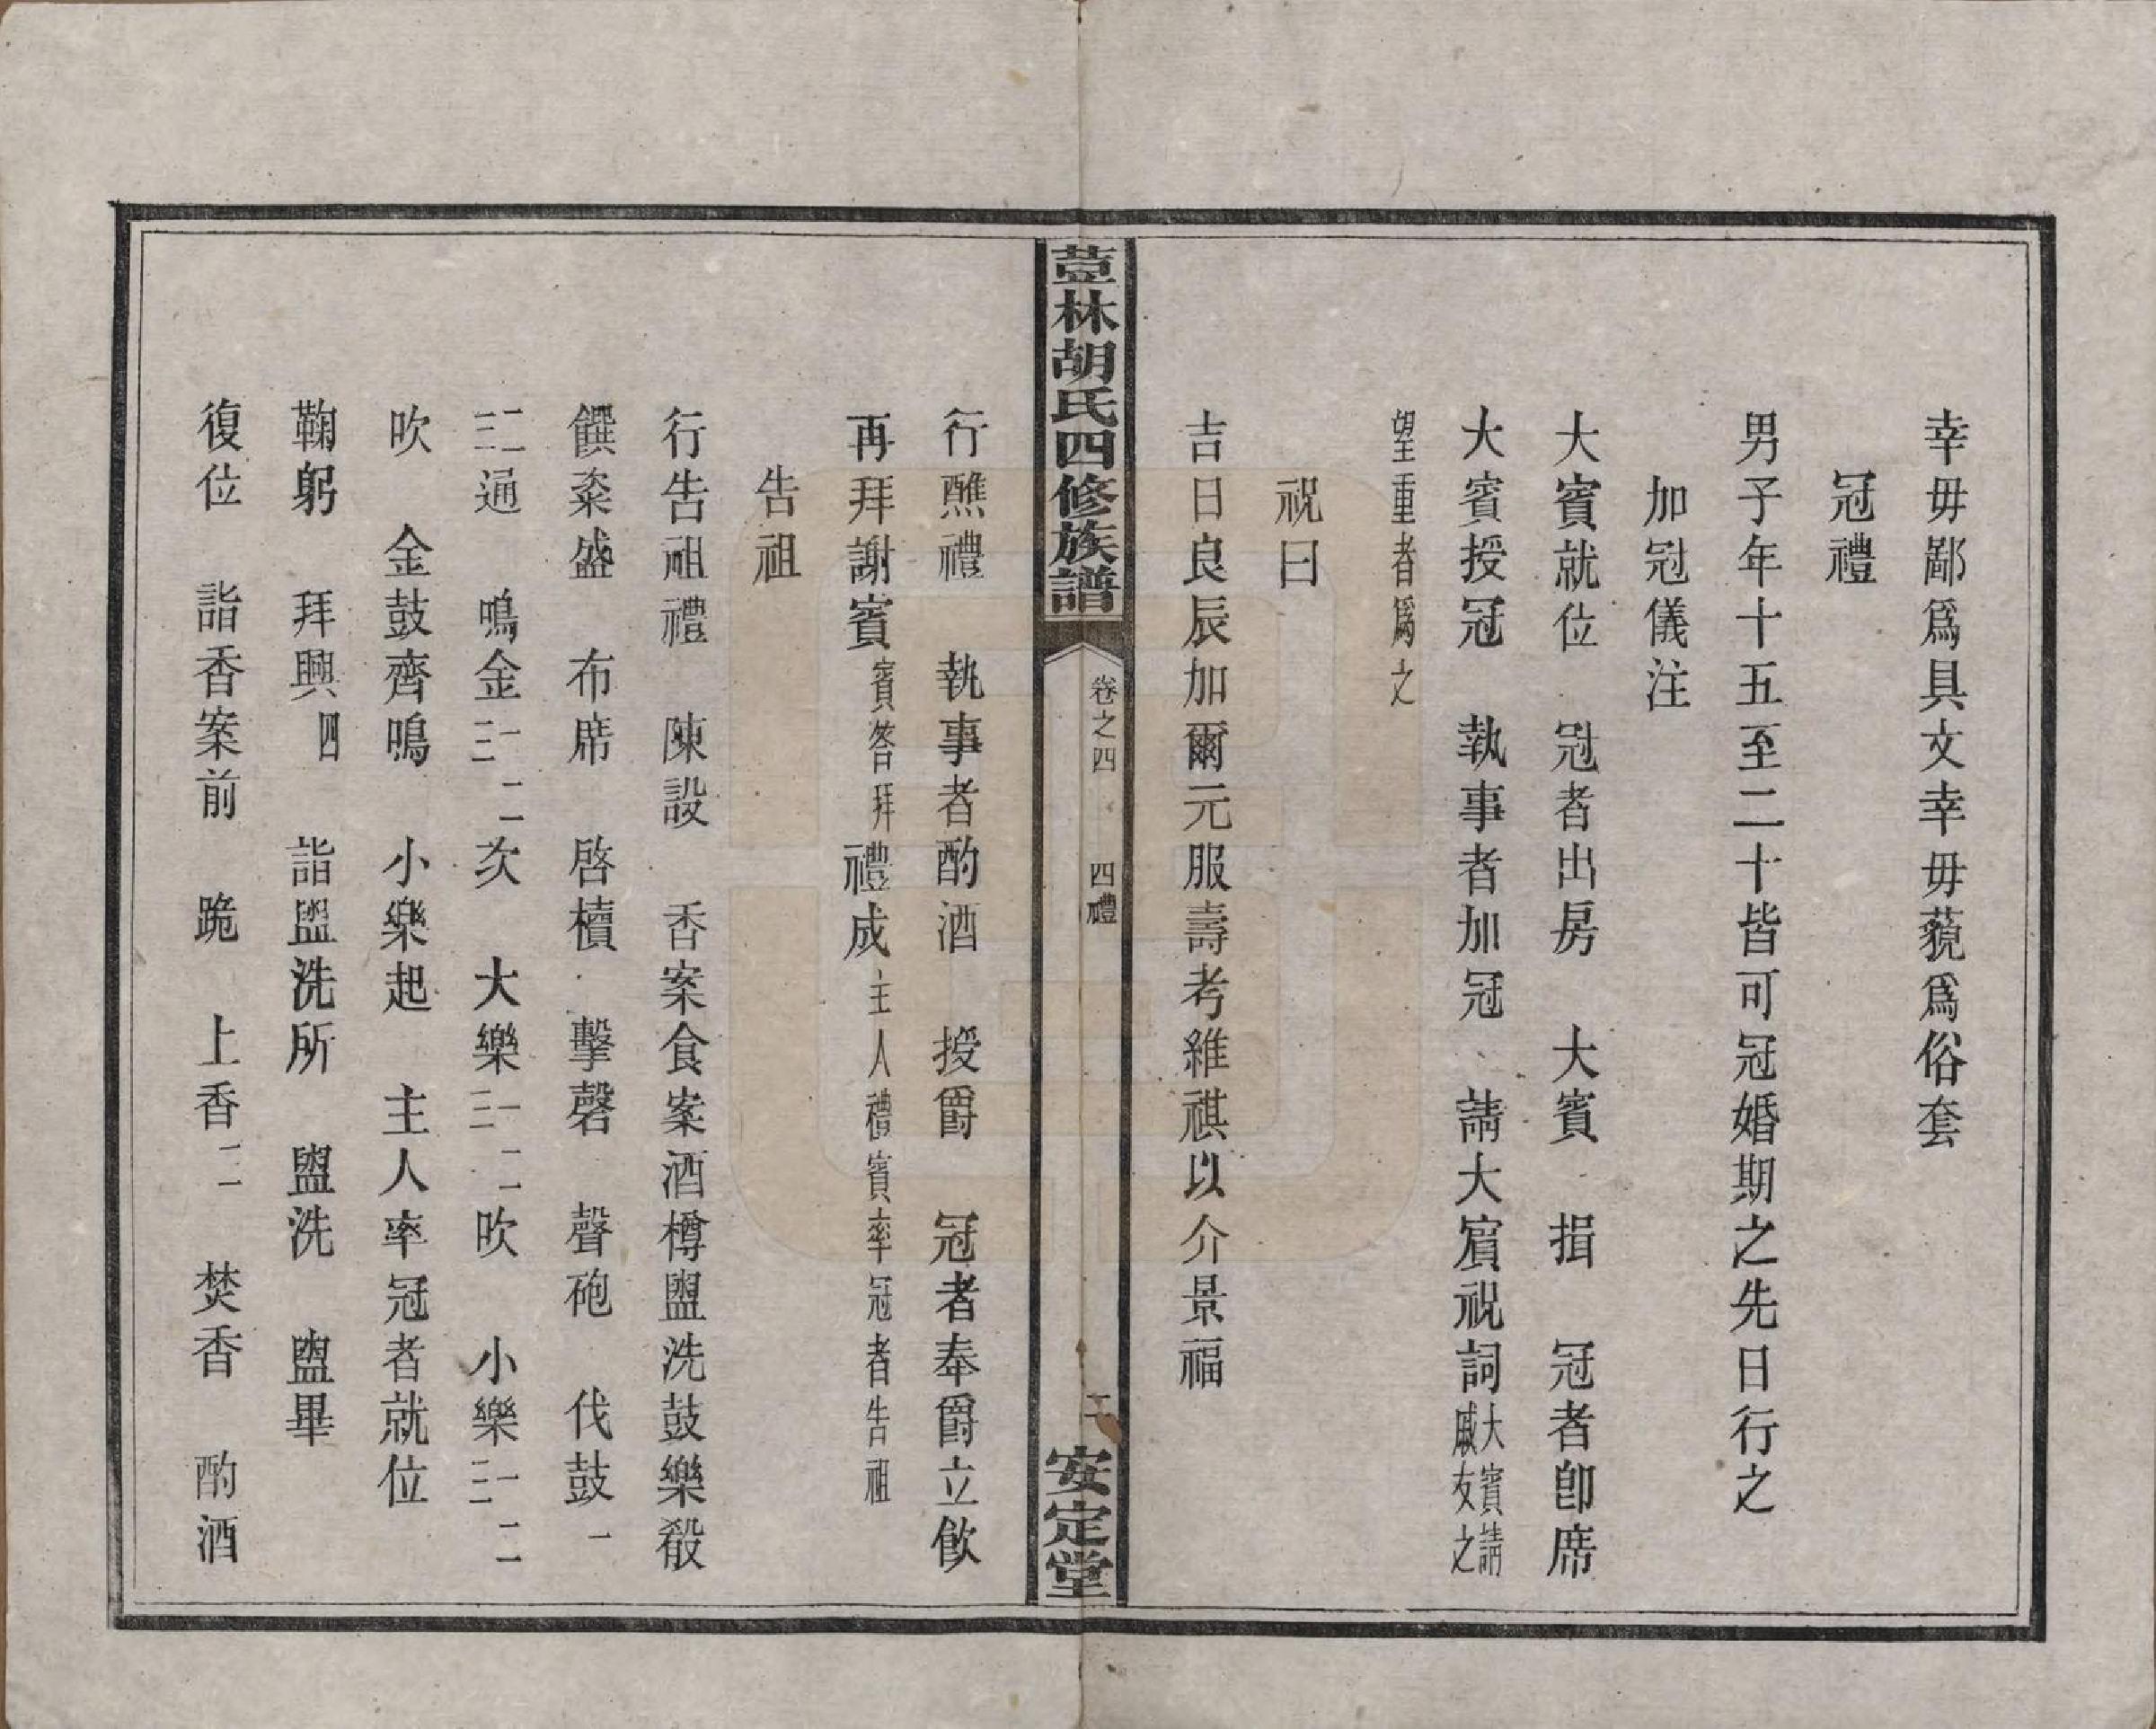 幸毋鄙爲具文幸毋藐爲俗套
冠禮
男子年十五至二十皆可冠婚期之先日行之
加冠儀注
大賓就位　冠者出房　大賓　揖　冠者卽席
大賓授冠　執事者加冠　請大賓祝詞大賓請戚友之
望重者爲之
祝曰
吉日良辰加爾元服壽考維祺以介景福
荳林胡氏四修族譜　卷之四　四禮　二　安定堂
行醮禮　執事者酌酒　授爵　冠者奉爵立飮
再拜謝賓賓答拜　禮成主人禮賓率冠者告祖
告祖
行告祖禮　陳設　香案食案酒樽盥洗鼓樂殽
饌粢盛　布席　啓櫝　擊磬　聲砲　伐鼓一
二三通　鳴金一二三次　大樂一二三吹　小樂一二三
吹　金鼓齊鳴　小樂起　主人率冠者就位
鞠躬　拜興四　詣盥洗所　盥洗　盥畢
復位　詣香案前　跪　上香二一　焚香　酌酒